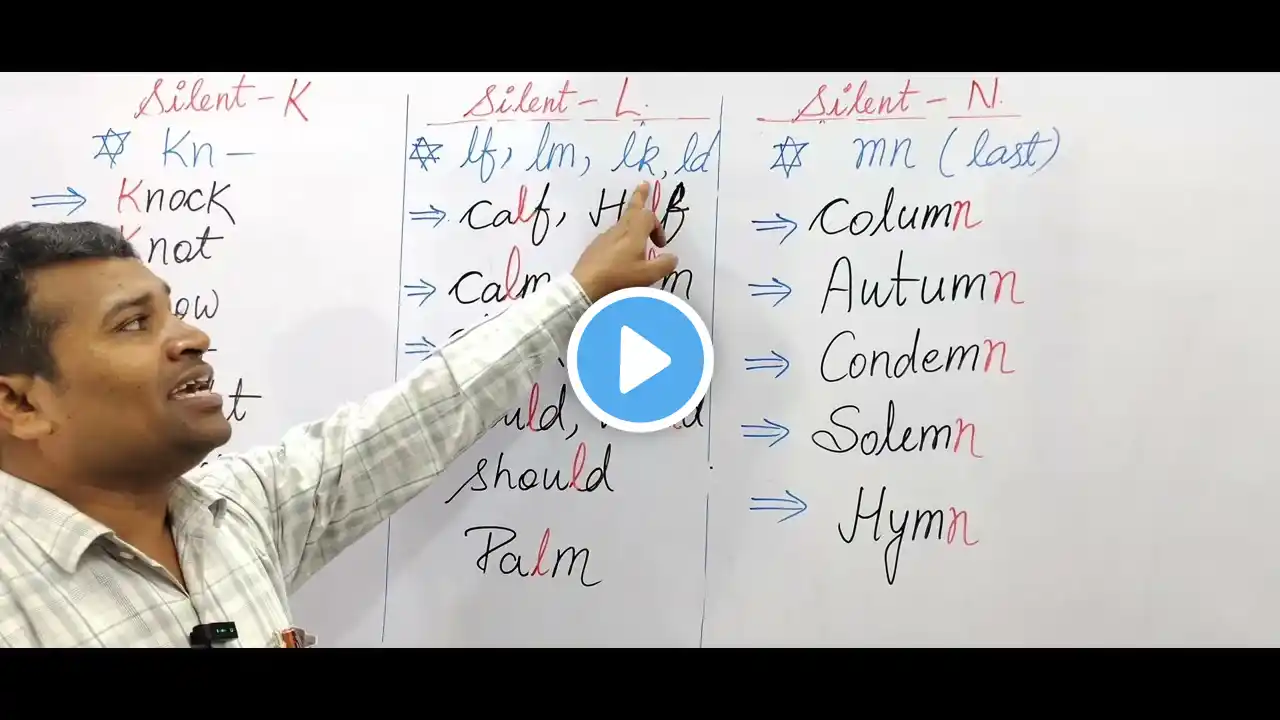 Silent - K
Kn -
Knock
Knot
Silent - L.
lf, lm, lk, ld
Calf, Half
Calm,
should
Palm
Silent - N.
mn (last)
Column
Autumn
Condemn
Solemn
Hymn